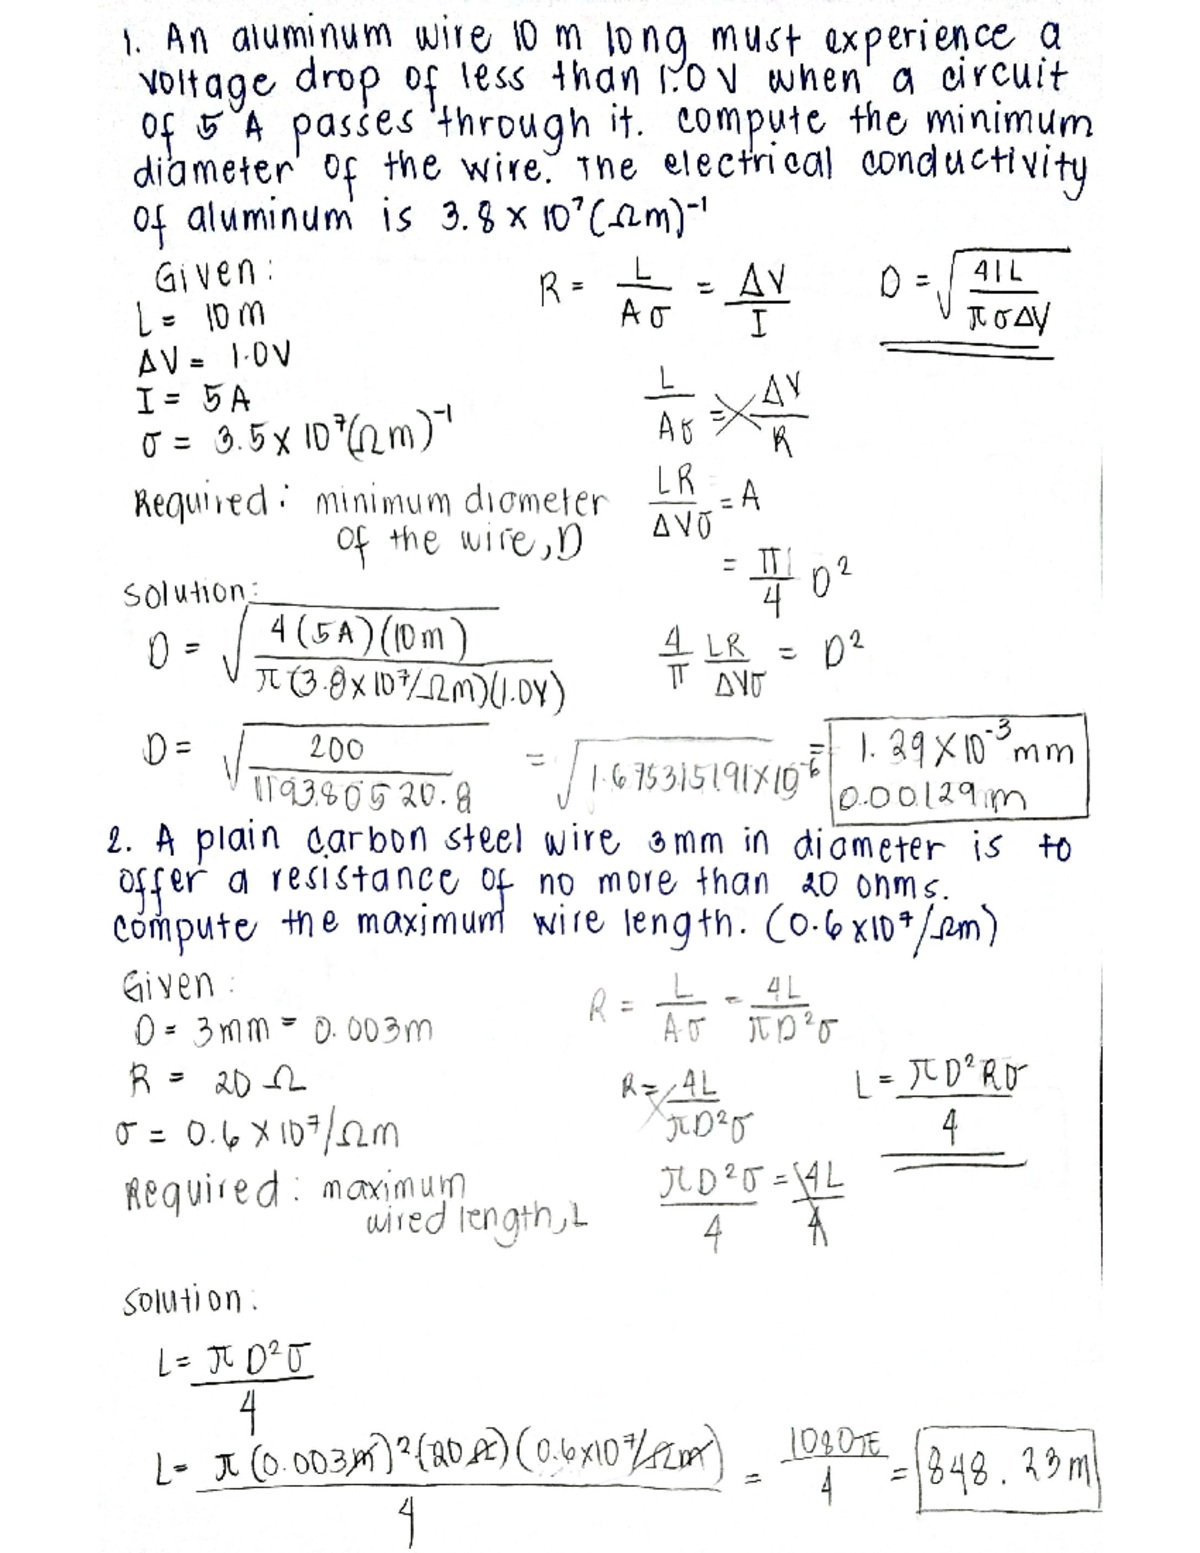 1. An aluminum wire 10 m long must experience a
voltage drop of less than 1.0 V when a circuit
of 5 A passes through it. compute the minimum
diameter of the wire. The electrical conductivity
of aluminum is 3.8 x 10⁷ (Ωm)⁻¹
Given:
L = 10 m
ΔV = 1.0V
I = 5 A
σ = 3.5 x 10⁷ (Ωm)⁻¹
Required: minimum diameter
of the wire, D
R = L / Aσ = ΔV / I
L / Aσ = ΔV / R
LR / ΔVσ = A
= π / 4 D²
4 / π LR / ΔVσ = D²
D = √(4IL / πσΔV)
Solution:
D = √(4(5A)(10m) / π(3.8 x 10⁷/Ωm)(1.0V))
D = √(200 / 119380520.8) = √(1.675315191 x 10⁻⁶) = 1.29 x 10⁻³ mm
0.00129 m
2. A plain carbon steel wire 3mm in diameter is to
offer a resistance of no more than 20 ohms.
compute the maximum wire length. (0.6 x 10⁷/Ωm)
Given:
D = 3mm = 0.003m
R = 20 Ω
σ = 0.6 x 10⁷/Ωm
Required: maximum
wired length, L
R = L / A·σ = 4L / πD²σ
R = 4L / πD²σ
πD²σ / 4 = 4L / 4
L = πD²Rσ / 4
Solution:
L = πD²σ / 4
L = π(0.003m)²(20Ω)(0.6x10⁷/Ωm) / 4 = 1080π / 4 = 848.23 m